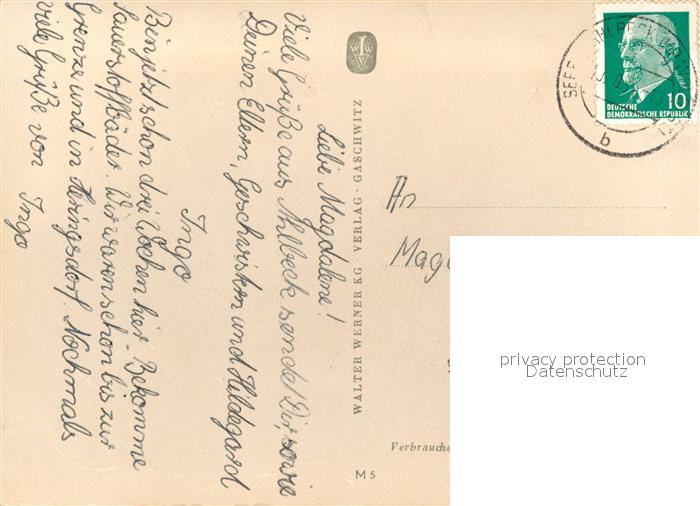 Liebe Magdalene!
Viele Grüße aus Ahlbeck sendet Dir, sowie
Deinen Eltern, Geschwistern und Hildegard
Ingo
Bin jetzt schon drei Wochen hier. Bekomme
Sauerstoffbäder. Wir waren schon bis zur
Grenze und in Heringsdorf. Nochmals
viele Grüße von Ingo
WALTER WERNER KG VERLAG · GASCHWITZ
M 5
DEUTSCHE
DEMOKRATISCHE REPUBLIK
10
b
An
Mag
Verbrauche
privacy protection
Datenschutz